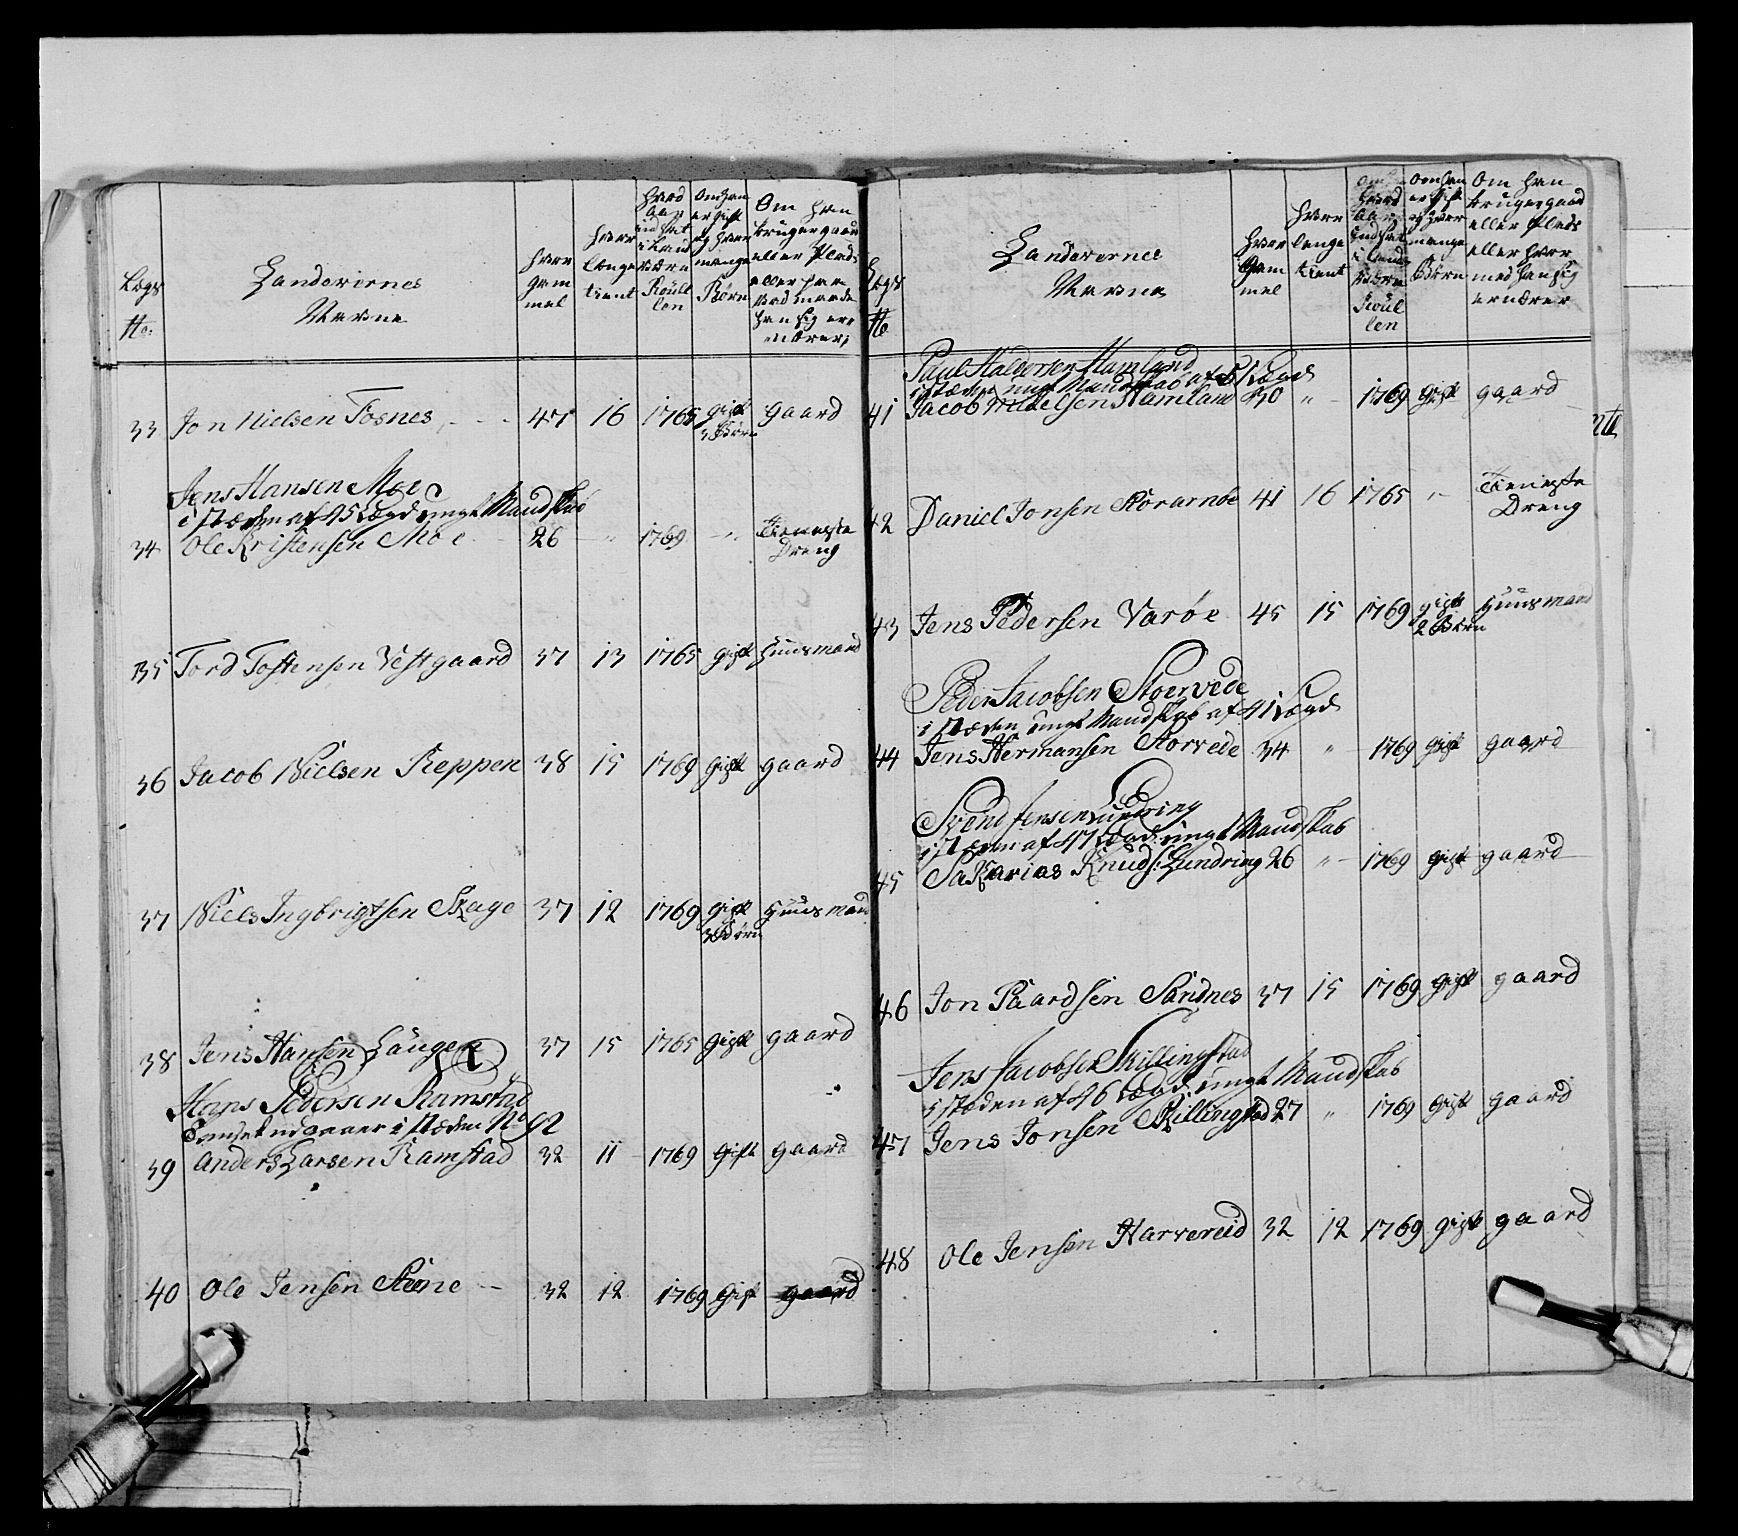 Lægs No:
Landevernes Navne
Hvor gammel
Hvor længe tient
Hvad Aar indsat i Landværn Roullen
Om han er gift og hvor mange Børn
Om han bruger gaard eller Plads eller paa hvad maade han sig ernærer
33 Jon Nielsen Fosnes 47 16 1765 gift 3 Børn gaard
Jens Hansen Moe
i stæden af 45 Lægd ungt Mandskab
34 Ole Kristensen Moe 26 " 1769 " Tieneste Dreng
35 Tord Tostensen Vestgaard 37 13 1765 gift Huusmand
36 Jacob Nielsen Reppen 38 15 1769 gift gaard
37 Niels Ingbrigtsen Skage 37 12 1769 gift 3 Børn Huusmand
38 Jens Hansen 37 15 1765 gift gaard
Hans Pedersen Ramstad
i stæden No 92
39 Anders Larsen Ramstad 32 11 1769 Gift gaard
40 Ole Jensen 32 12 1769 Gift gaard
Lægs No
Landevernes Navne
Hvor Gammel
Hvor længe tient
Hvad Aar indsat i Landværn Roullen
Om han er Gift og hvor mange Børn
Om han bruger gaard eller Plads eller hvor med han sig ernærer
Paul Haldorsen Hamland
i stæden ungt Mandskab af 51 Lægd
41 Jacob Mikelsen Hamland 30 " 1769 gift gaard
42 Daniel Jonsen 41 16 1765 " Tieneste Dreng
43 Jens Pedersen Varøe 45 15 1769 gift 2 Børn Huusmand
Peder Jacobsen Stoervede
i stæden ungt Mandskab af 41 Lægd
44 Jens Hermansen Storvede 34 " 1769 gift gaard
Svend Jensen Lundring
i stæden af 47 Lægd ungt Mandskab
45 Sakarias Knuds: Lundring 26 " 1769 gift gaard
46 Jon Paardsen Sandnes 37 15 1769 gift gaard
Jens Jacobsen Skillingstad
i stæden af 46 Lægd ungt Mandskab
47 Jens Jonsen Skillingstad 27 " 1769 Gift gaard
48 Ole Jensen Harvereid 32 12 1769 gift gaard